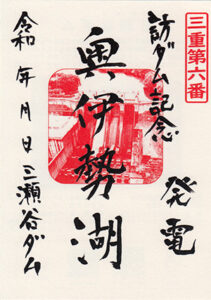 三重第六番
訪ダム記念
発電
奥伊勢湖
令和 年 月 日 三瀬谷ダム